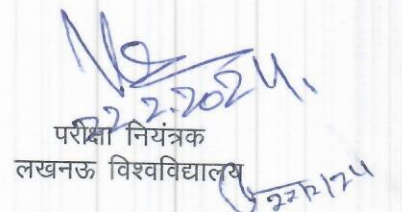 22.2.2024
परीक्षा नियंत्रक
लखनऊ विश्वविद्यालय